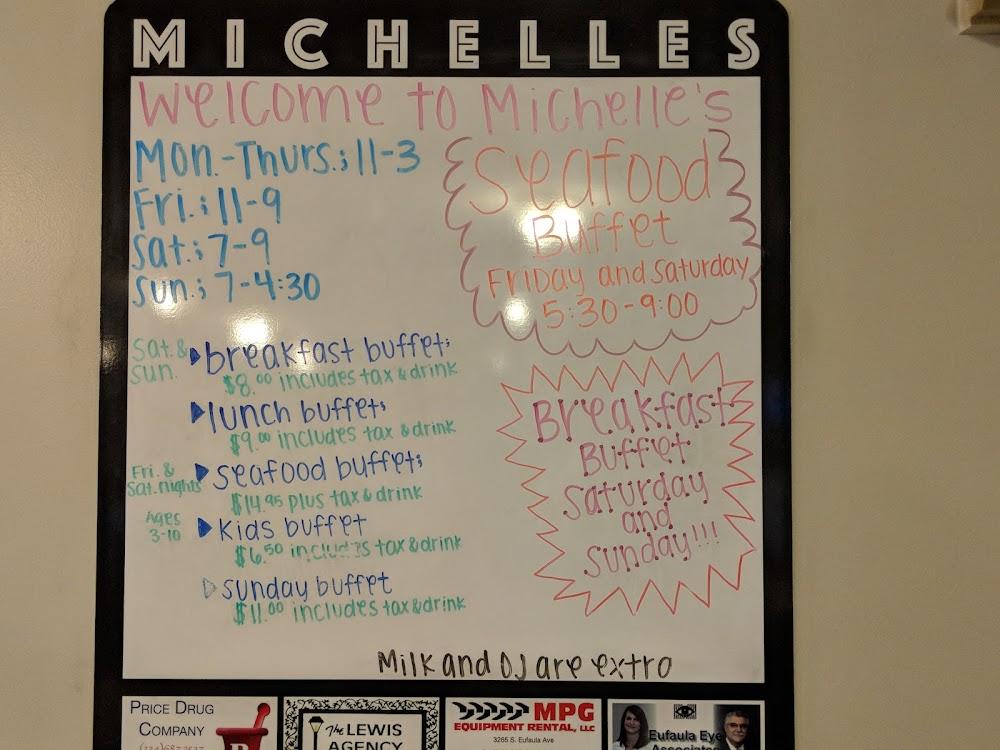 MICHELLES
Welcome to Michelle's
Mon.-Thurs.: 11-3
Fri.: 11-9
Sat.: 7-9
Sun.: 7-4:30
Seafood
Buffet
Friday and Saturday
5:30-9:00
Sat. &
Sun.
breakfast buffet:
$8.00 includes tax & drink
lunch buffet:
$9.00 includes tax & drink
Fri. &
Sat. nights
seafood buffet:
$14.95 plus tax & drink
Ages
3-10
Kids buffet
$6.50 includes tax & drink
Sunday buffet
$11.00 includes tax & drink
Breakfast
Buffet
Saturday
and
Sunday!!!
Milk and OJ are extra
PRICE DRUG
COMPANY
The LEWIS
AGENCY
MPG
EQUIPMENT RENTAL, LLC
3265 S. Eufaula Ave
Eufaula Eye
Associates